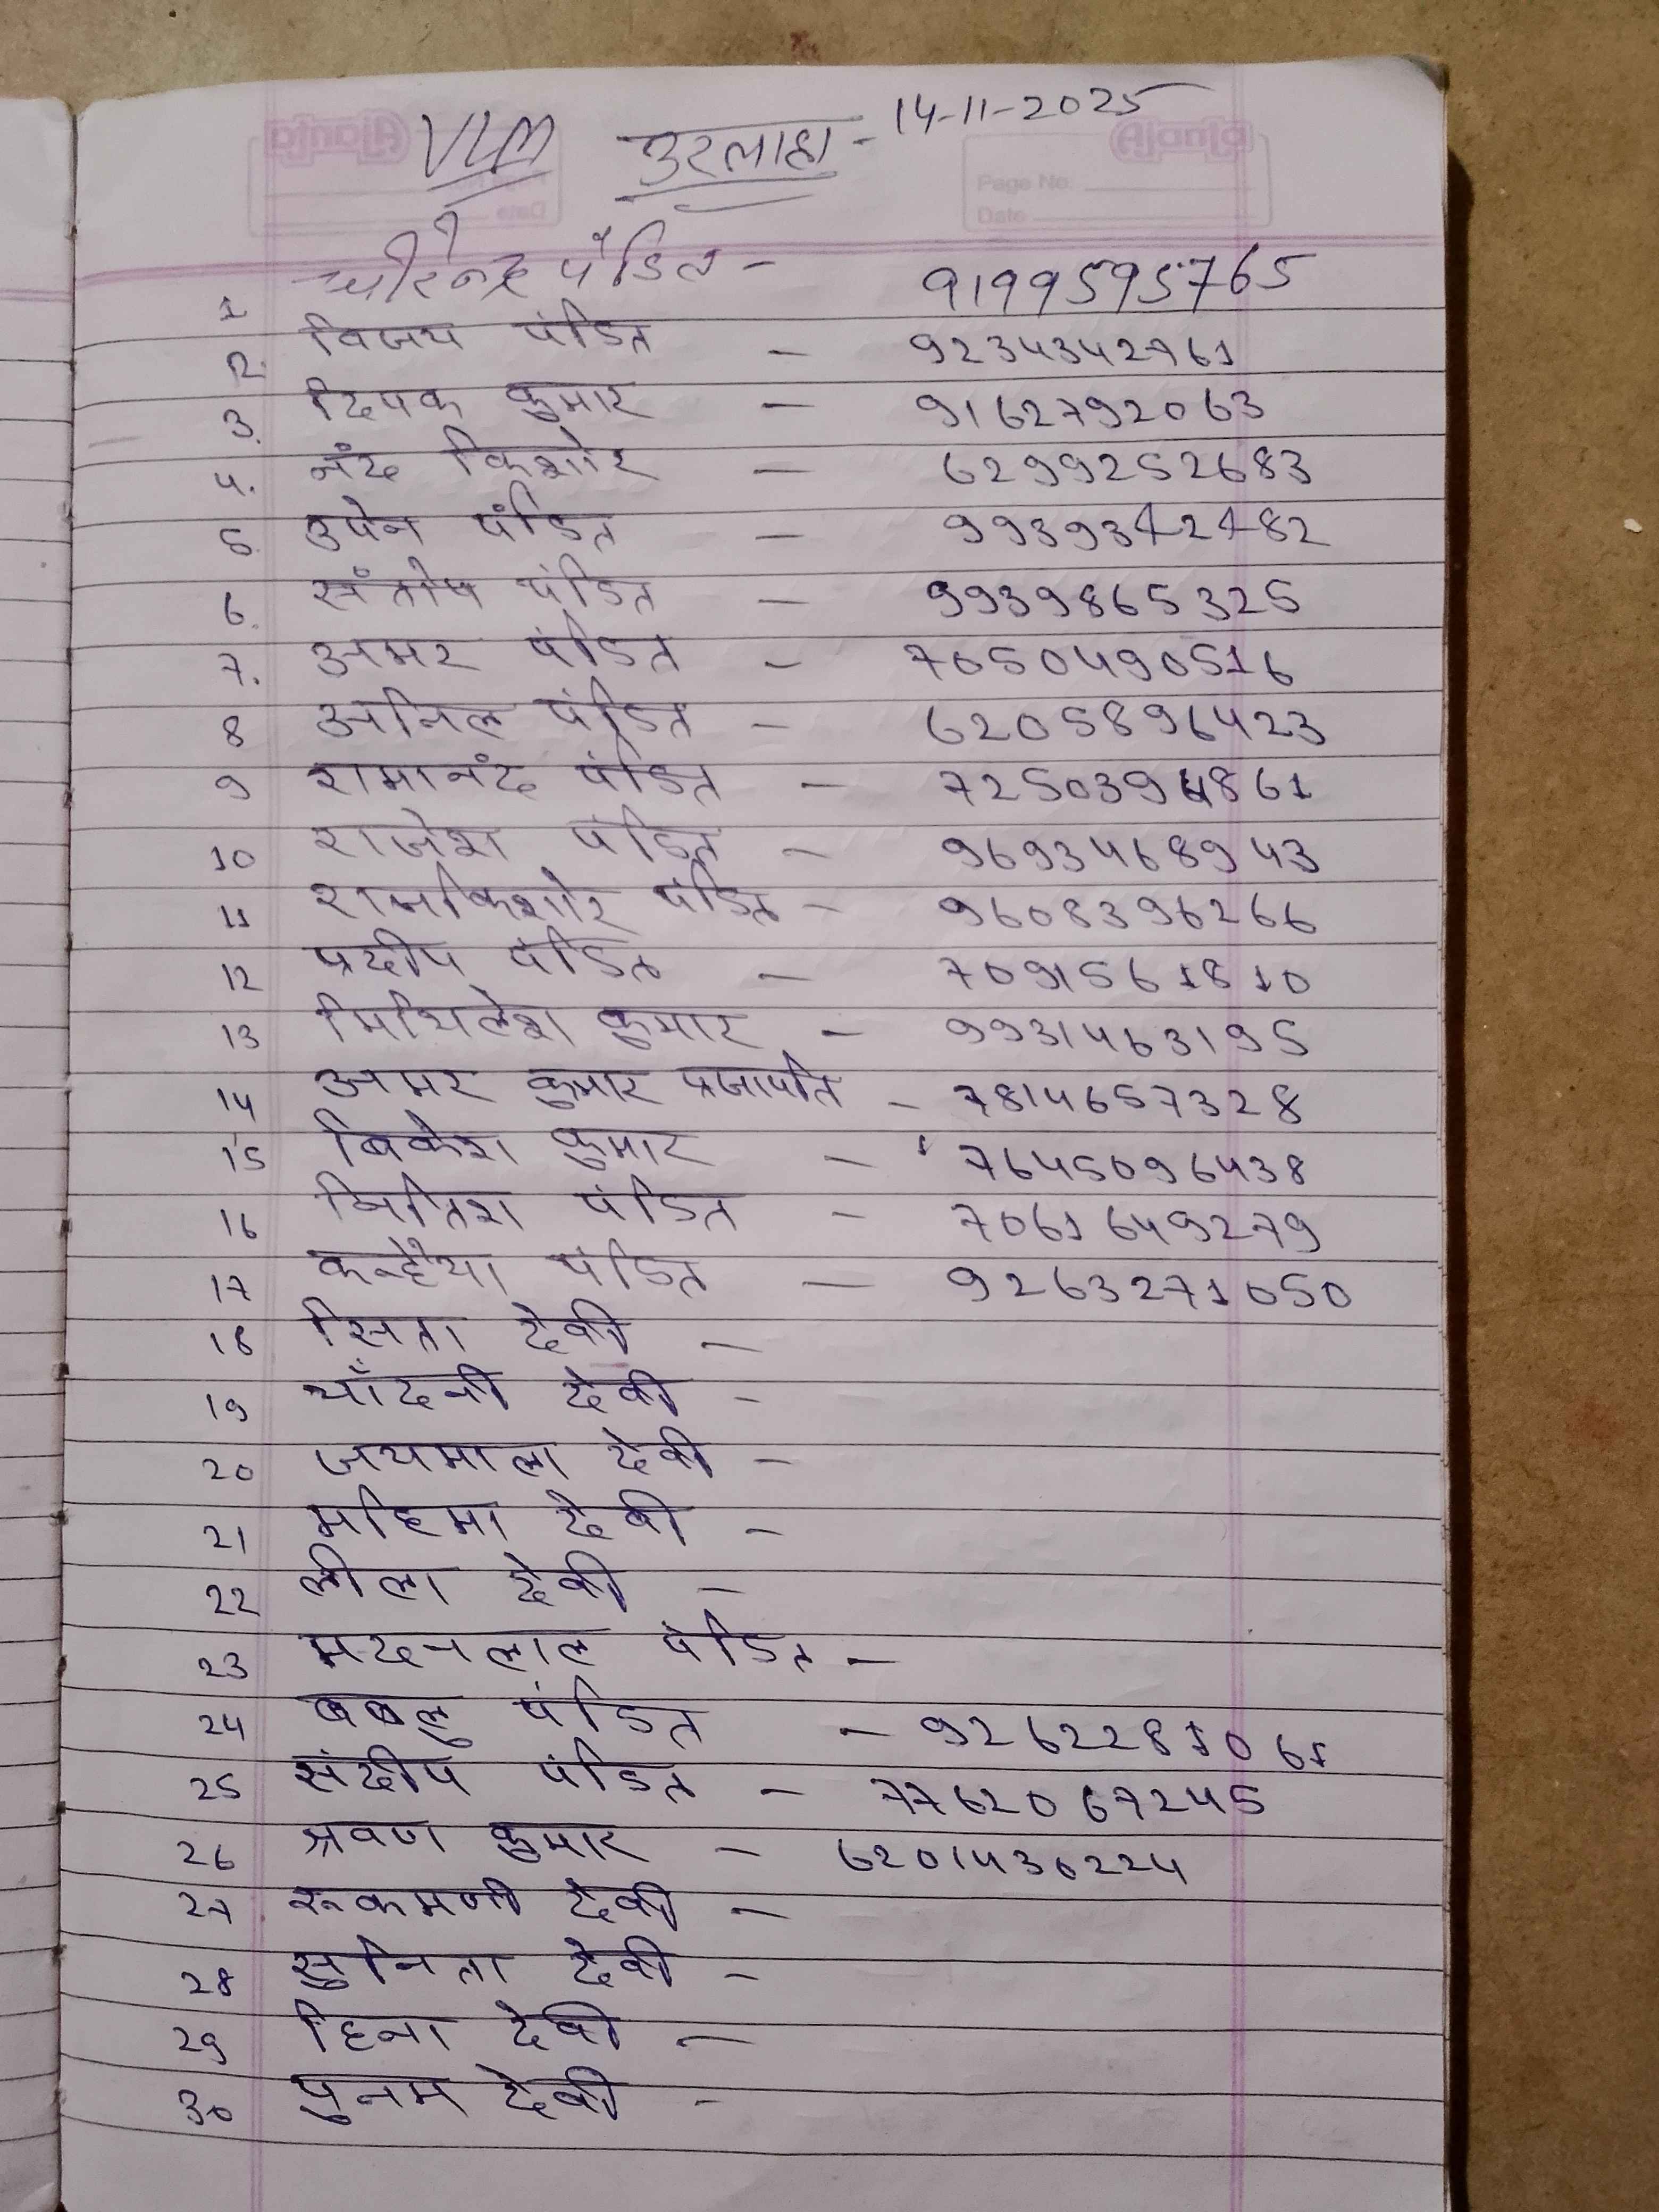 VLM उरलाहा - 14-11-2025
1 धीरेन्द्र पंडित - 9199595765
2. विजय पंडित - 9234342761
3. दिपक कुमार - 9162792063
4. नंद किशोर - 6299252683
5. उपेन पंडित - 9939342482
6. संतोष पंडित - 9939865325
7. अमर पंडित - 7050490516
8 अनिल पंडित - 6205896423
9 रामानंद पंडित - 7250394861
10 राजेश पंडित - 9693468943
11 रामकिशोर पंडित - 9608396266
12 प्रदीप पंडित - 7091561810
13 मिथिलेश कुमार - 9931463195
14 अमर कुमार प्रजापति - 7814657328
15 बिकेश कुमार - 7645096438
16 नितिश पंडित - 7061649279
17 कन्हैया पंडित - 9263271050
18 सिता देवी -
19 चाँदनी देवी -
20 जयमाला देवी -
21 महिमा देवी -
22 लीला देवी -
23 मदनलाल पंडित -
24 बबलु पंडित - 9262281061
25 संदीप पंडित - 7762067245
26 श्रवण कुमार - 6201436224
27 रूकमणी देवी -
28 सुनिता देवी -
29 हिना देवी -
30 पुनम देवी -